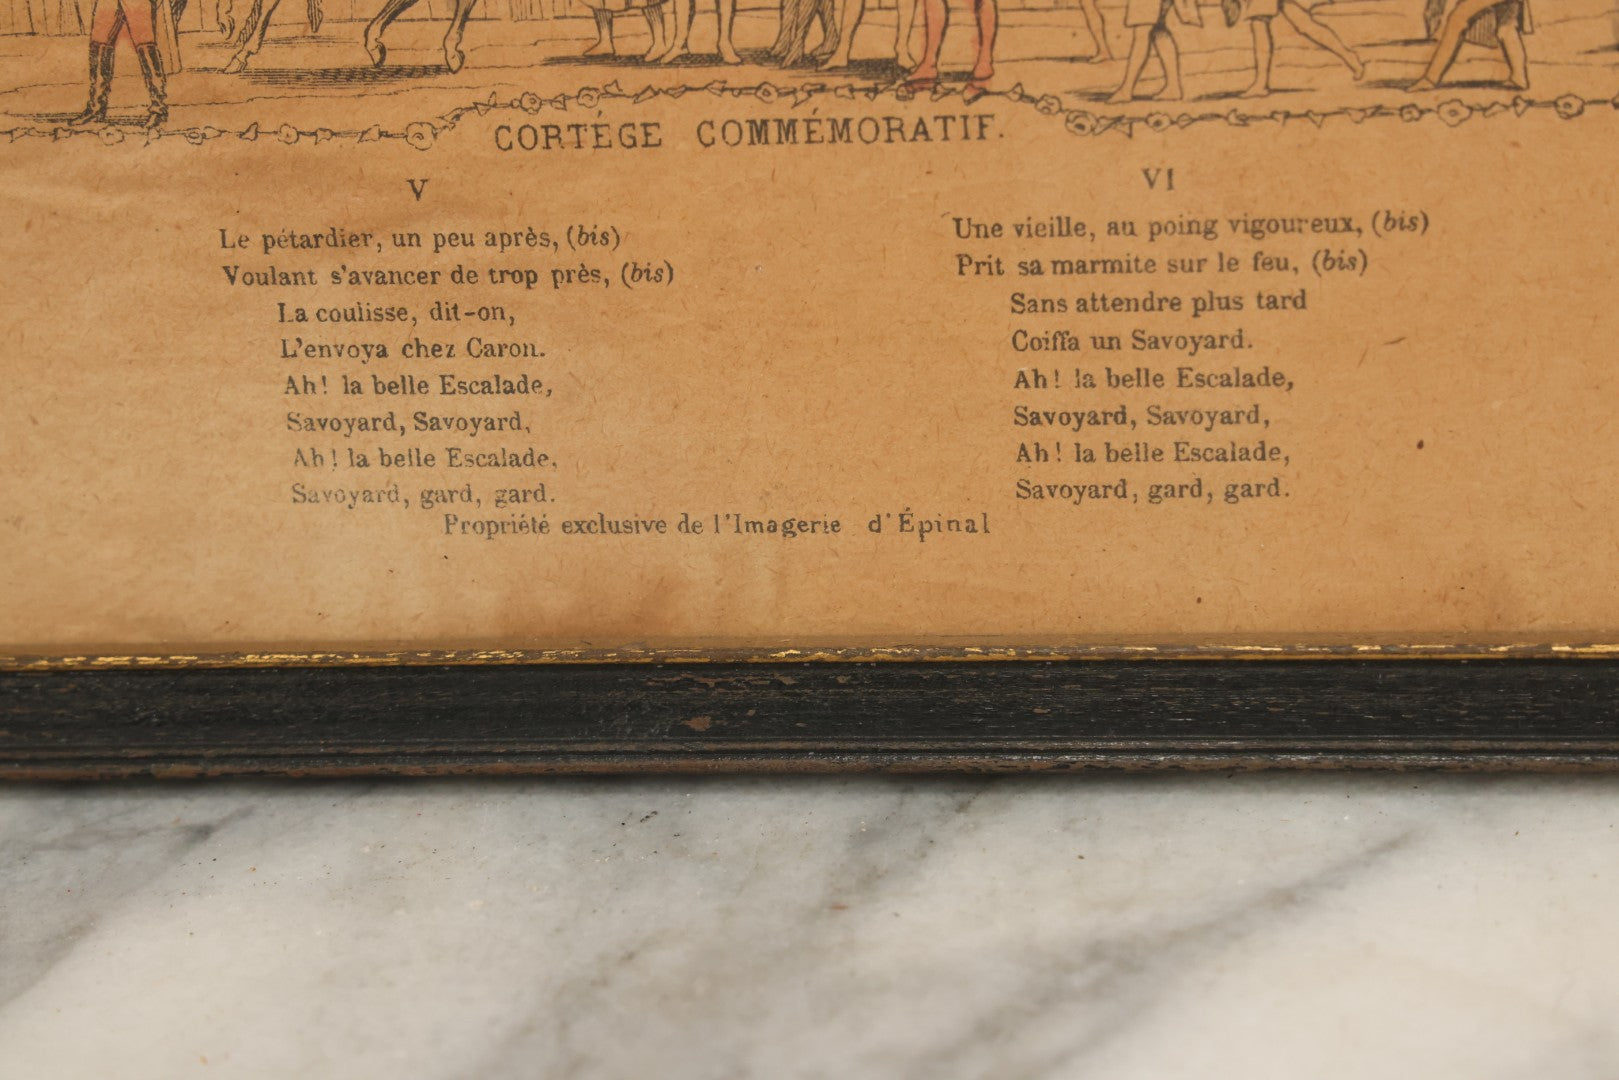 CORTÉGE COMMÉMORATIF.
V
Le pétardier, un peu après, (bis)
Voulant s'avancer de trop près, (bis)
La coulisse, dit-on,
L'envoya chez Caron.
Ah! la belle Escalade,
Savoyard, Savoyard,
Ah! la belle Escalade,
Savoyard, gard, gard.
VI
Une vieille, au poing vigoureux, (bis)
Prit sa marmite sur le feu, (bis)
Sans attendre plus tard
Coiffa un Savoyard.
Ah! la belle Escalade,
Savoyard, Savoyard,
Ah! la belle Escalade,
Savoyard, gard, gard.
Propriété exclusive de l'Imagerie d'Épinal